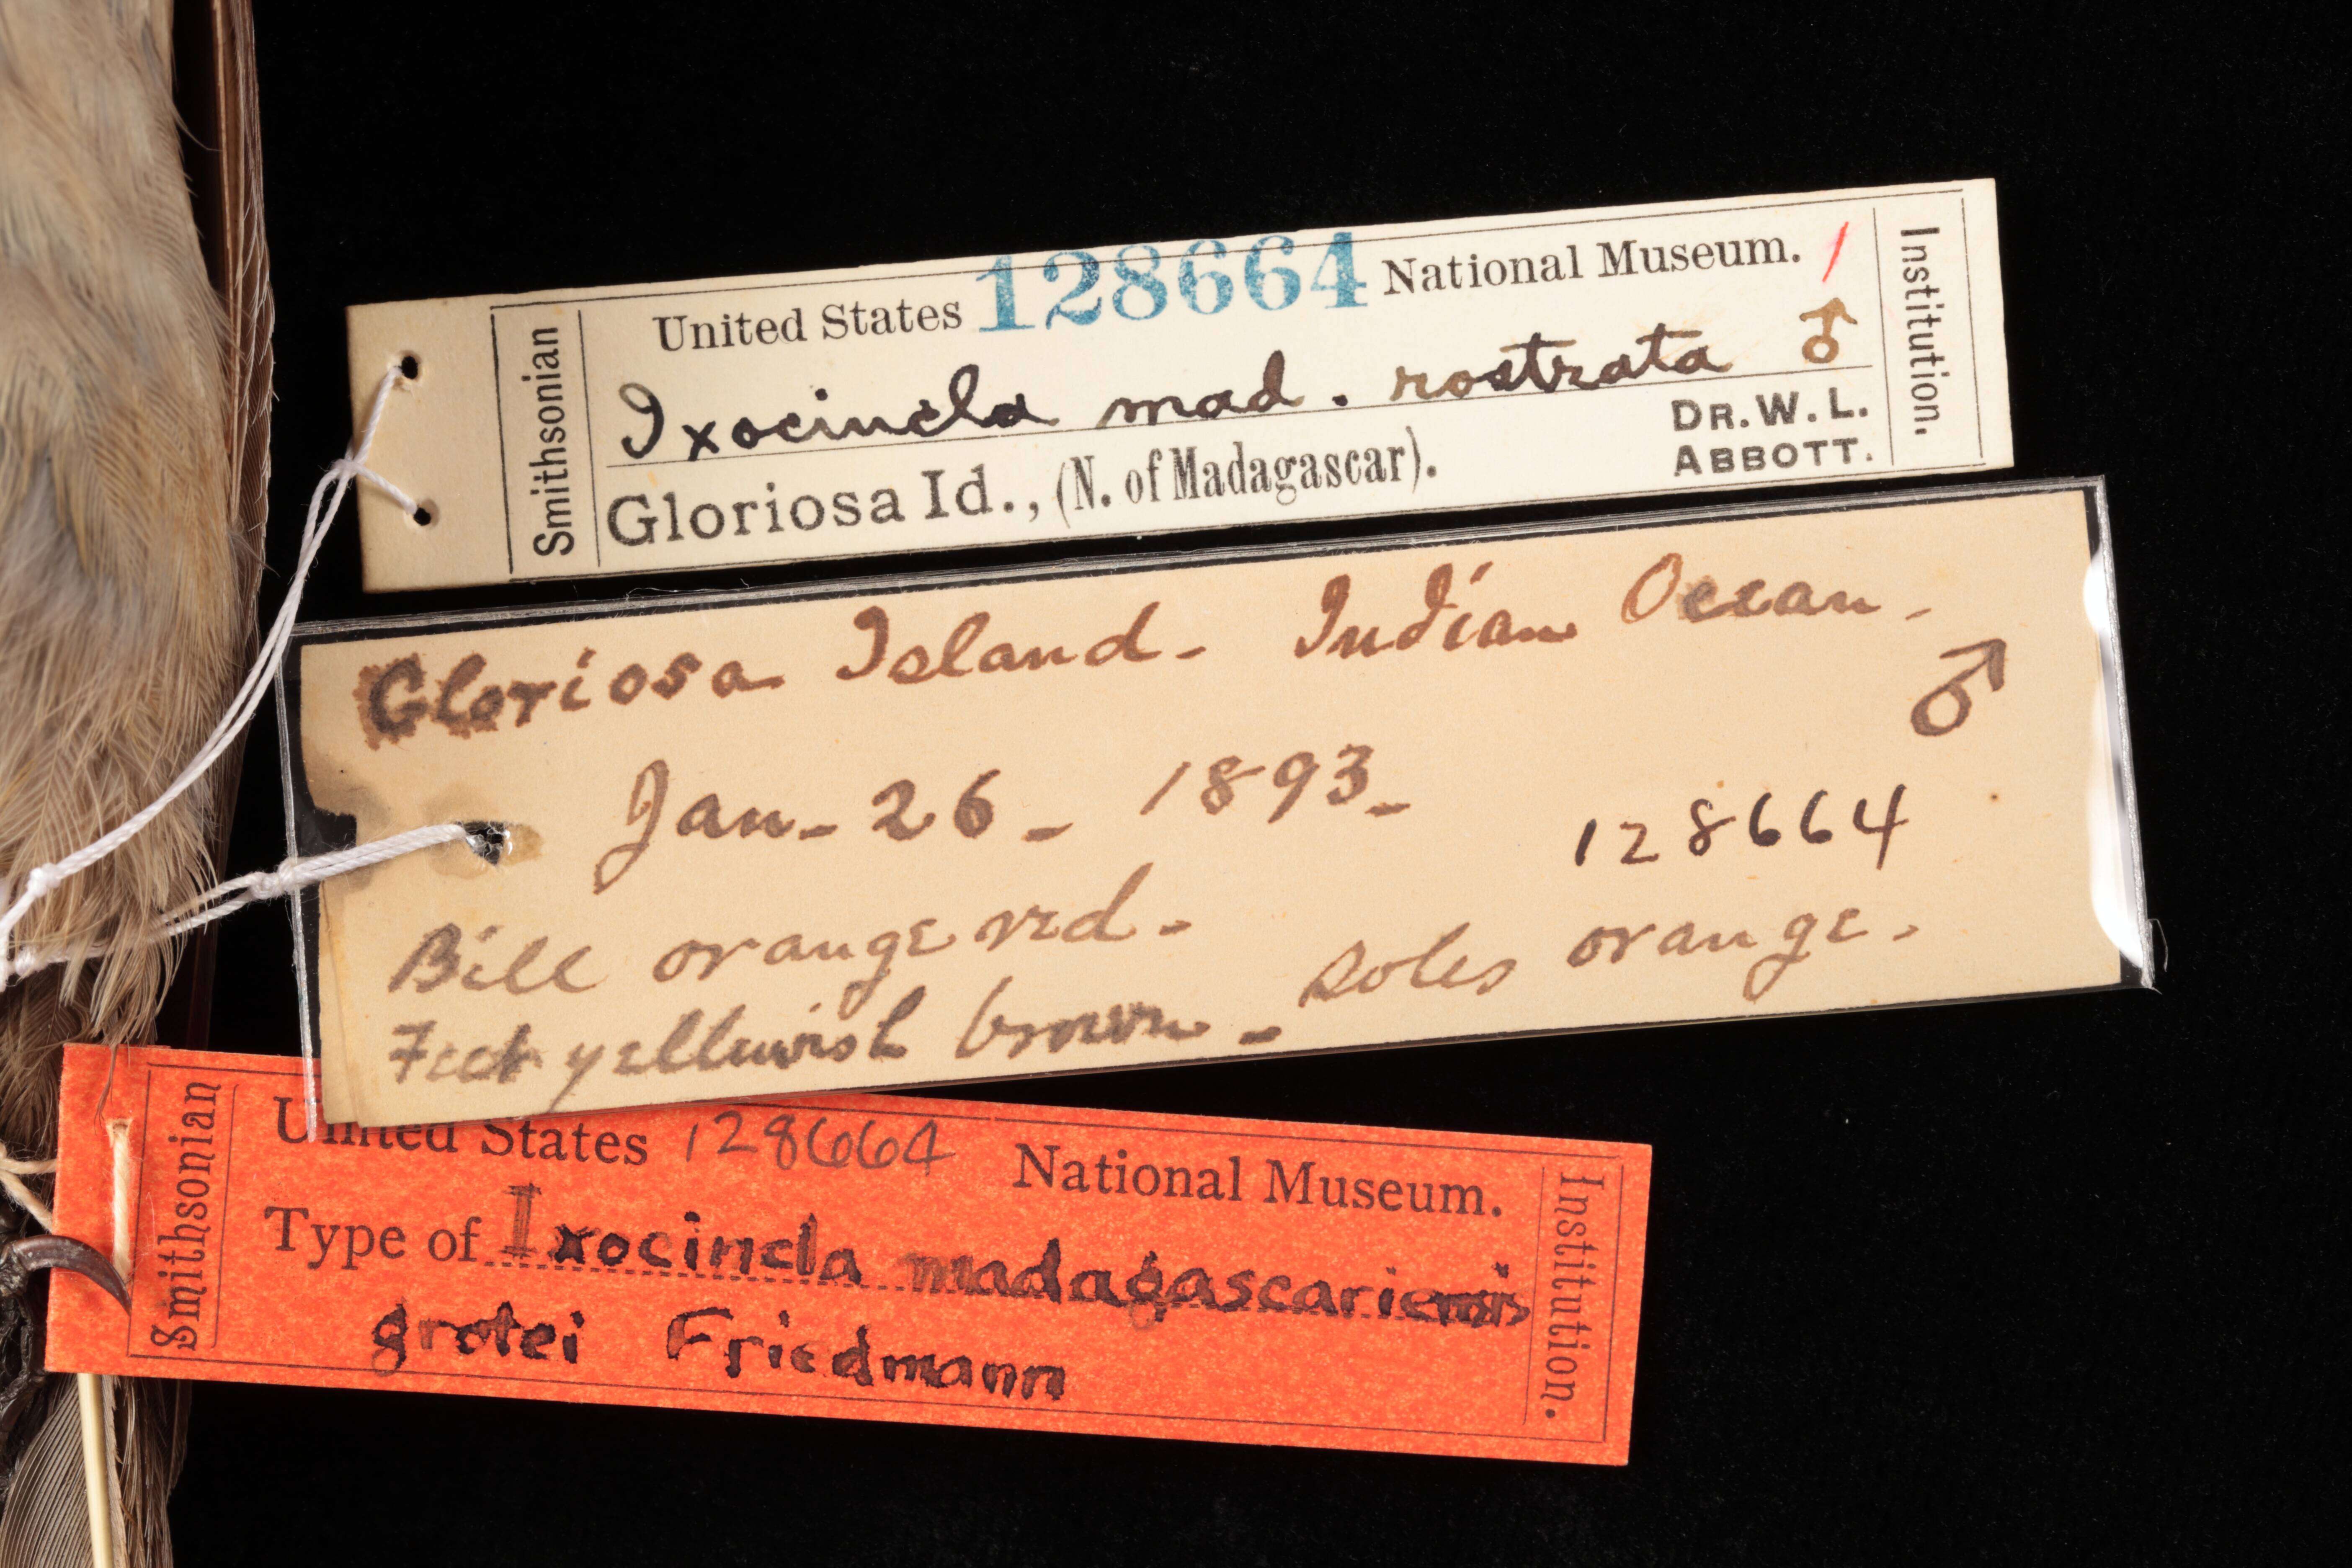 Smithsonian
United States 128664 National Museum. /
Ixocincla mad. rostrata ♂
Gloriosa Id., (N. of Madagascar).
DR. W. L.
ABBOTT.
Institution.
Gloriosa Island - Indian Ocean -
♂
Jan - 26 - 1893 -
128664
Bill orange red -
Feet yellowish brown - soles orange.
Smithsonian
United States 128664 National Museum.
Type of Ixocincla madagascariensis
grotei Friedmann
Institution.